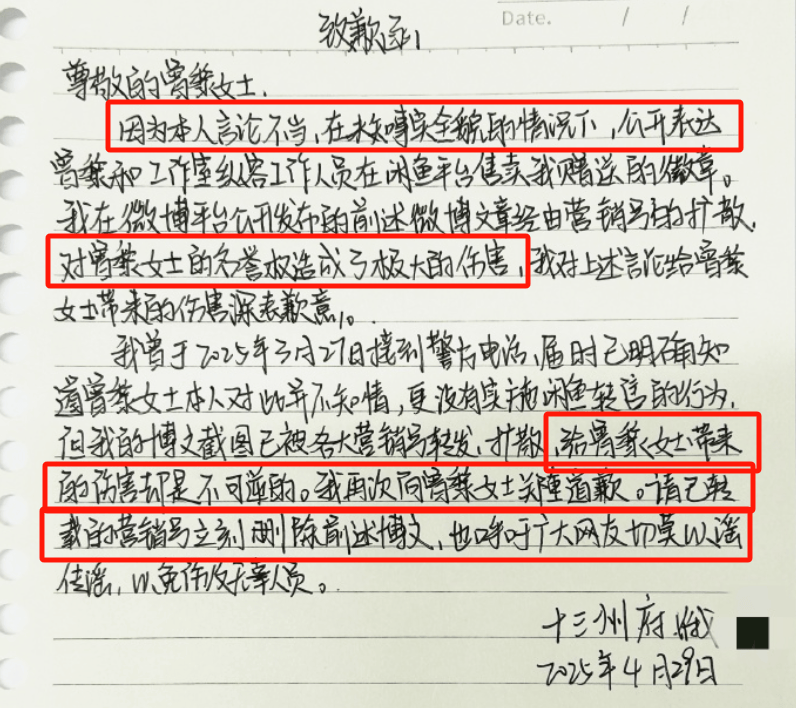 致歉函
Date. / /
尊敬的曾黎女士.
因为本人言论不当,在未知事实全貌的情况下,公开表达
曾黎和工作室纵容工作人员在闲鱼平台售卖我赠送的徽章。
我在微博平台公开发布的前述微博文章经由营销号的扩散,
对曾黎女士的名誉权造成了极大的伤害,我对上述言论给曾黎
女士带来的伤害深表歉意。
我曾于2025年3月27日接到警方电话,届时已明确知
道曾黎女士本人对此并不知情,更没有实施闲鱼转售的行为,
但我的博文截图已被各大营销号转发,扩散,给曾黎女士带来
的伤害却是不可逆的。我再次向曾黎女士郑重道歉。请已转
载的营销号立刻删除前述博文,也呼吁广大网友切莫以谣
传谣,以免伤及无辜人员。
十三州府
2025年4月29日